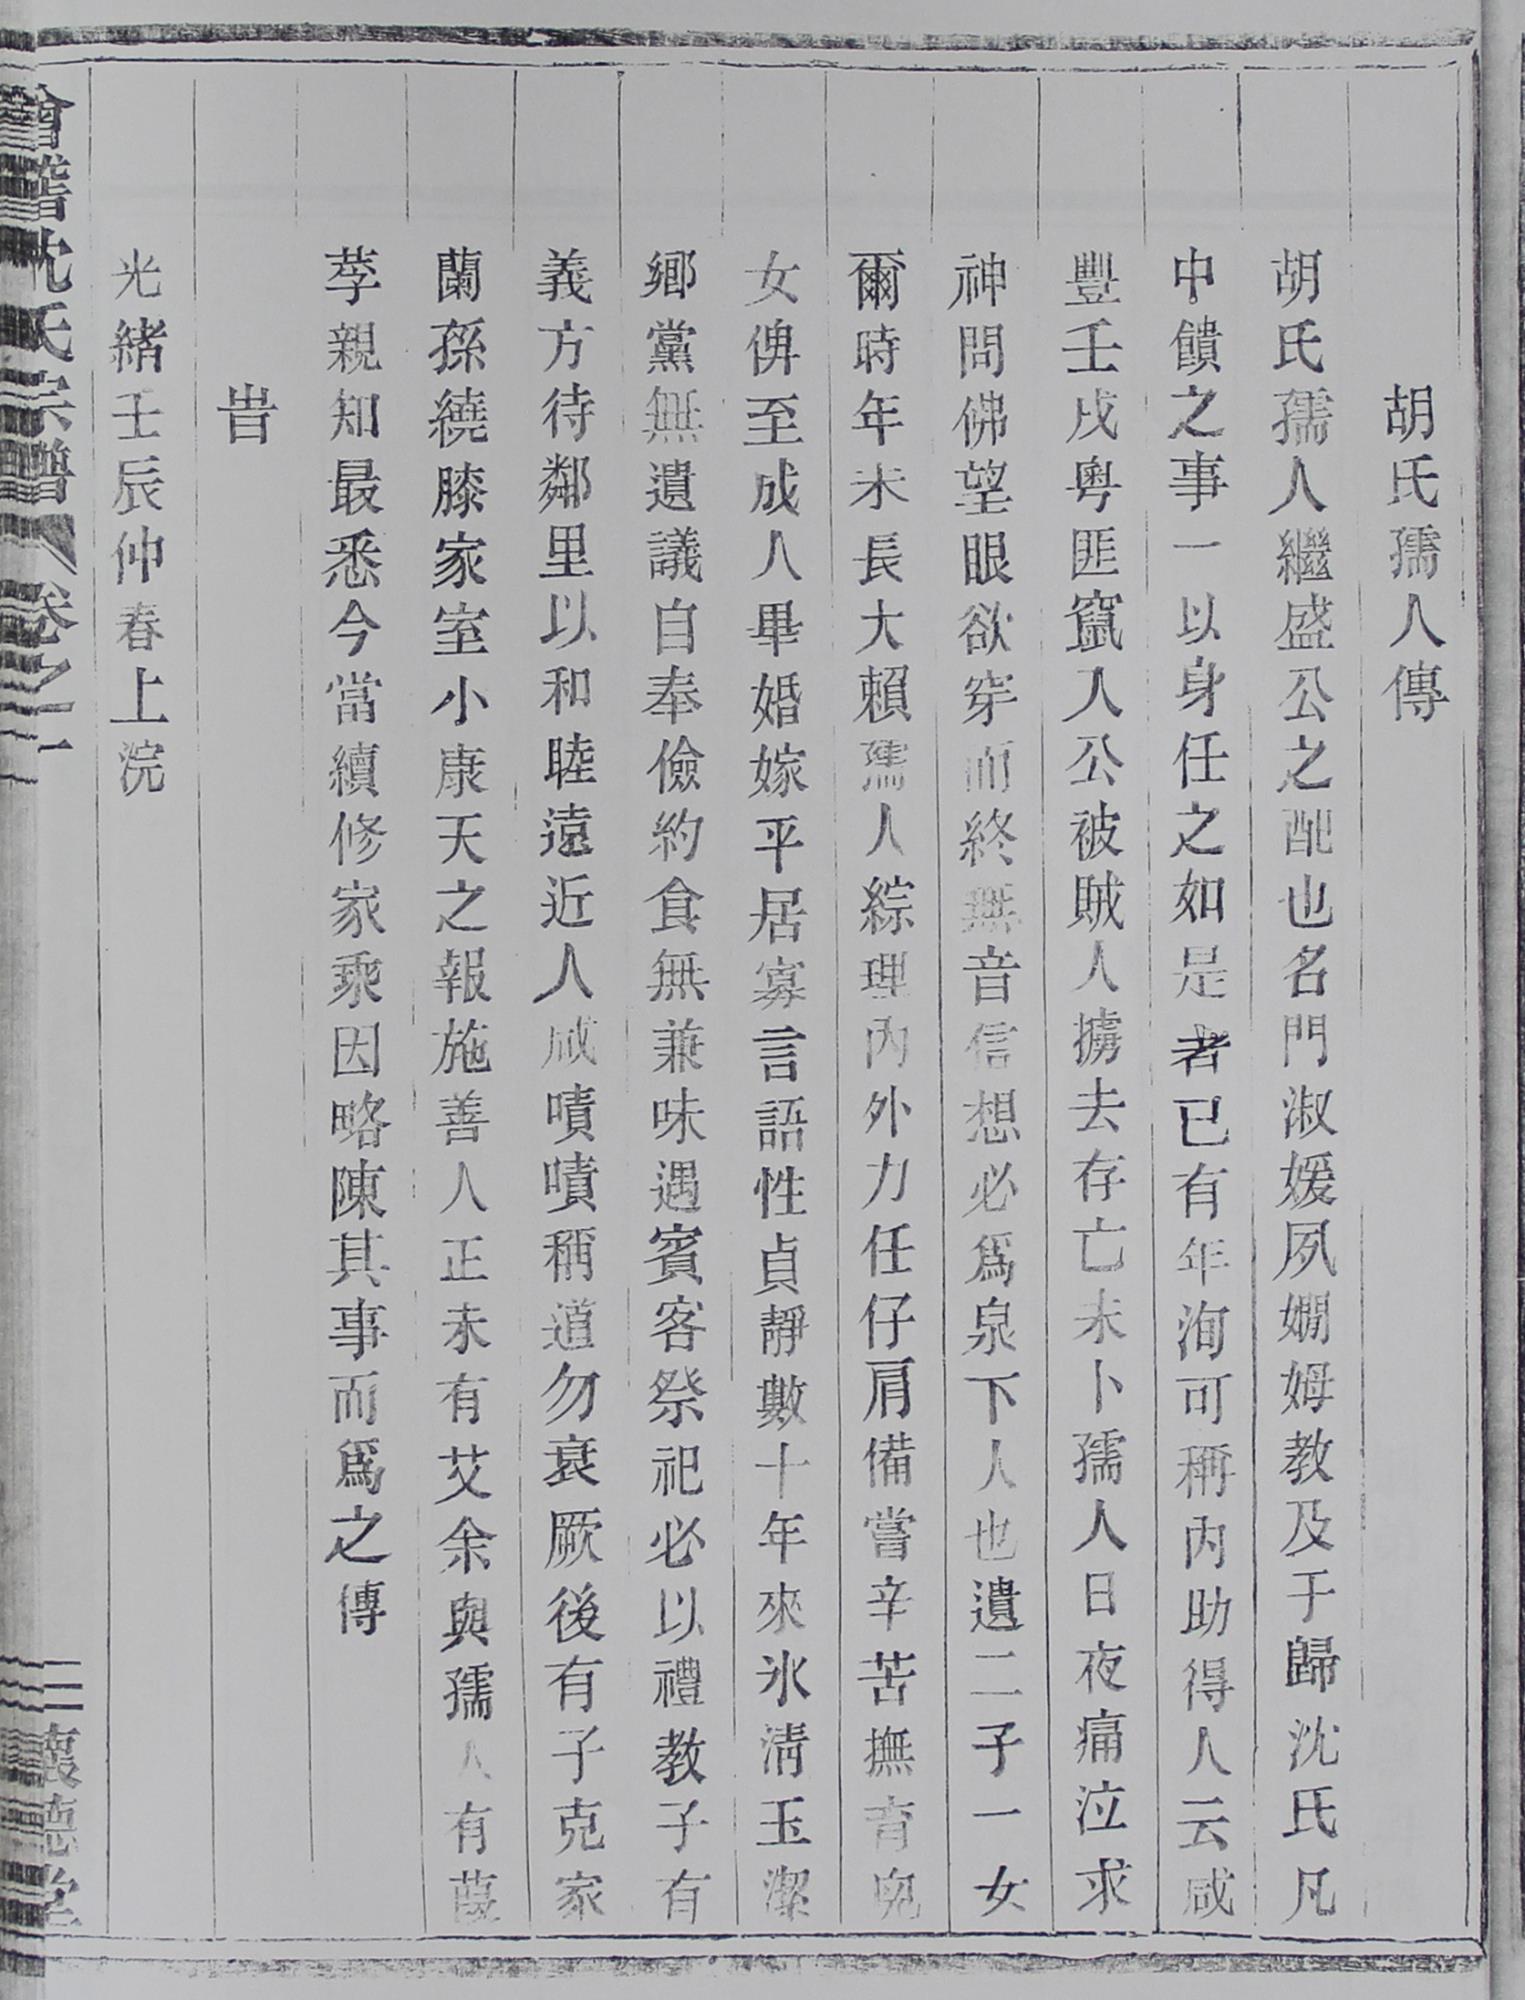 胡氏孺人傳
胡氏孺人繼盛公之配也名門淑媛夙嫺姆教及于歸沈氏凡
中饋之事一以身任之如是者已有年洵可稱內助得人云咸
豐壬戌粵匪竄入公被賊人擄去存亡未卜孺人日夜痛泣求
神問佛望眼欲穿而終無音信想必爲泉下人也遺二子一女
爾時年未長大賴孺人綜理內外力任仔肩備嘗辛苦撫育兒
女俾至成人畢婚嫁平居寡言語性貞靜數十年來氷清玉潔
鄉黨無遺議自奉儉約食無兼味遇賓客祭祀必以禮教子有
義方待鄰里以和睦遠近人咸嘖嘖稱道勿衰厥後有子克家
蘭孫繞膝家室小康天之報施善人正未有艾余與孺人有葭
莩親知最悉今當續修家乘因略陳其事而爲之傳
旹
光緒壬辰仲春上浣
會稽沈氏宗譜 卷之一 三 懷德堂